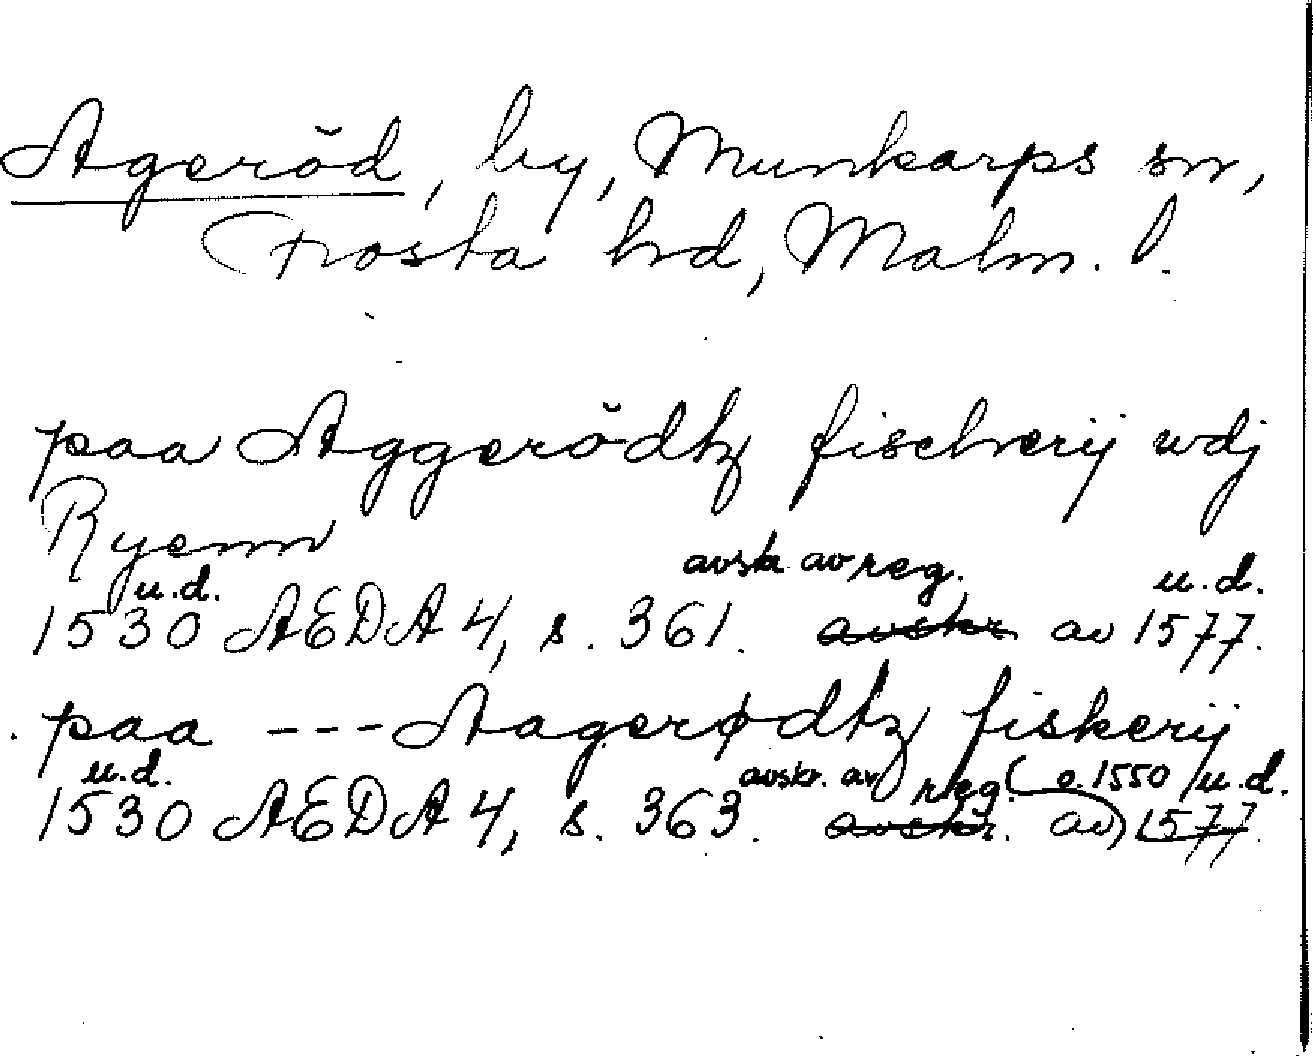 Ageröd, by, Munkarps sn,
Frosta hd, Malm. l.
paa Aggerödtz fischerij wdj
Ryenn
avskr av reg. u.d.
u.d.
1530 AEDA 4, s. 361. avskr. av 1577.
paa --- Aagerødtz fiskerij
u.d. avskr. av reg. (o. 1550 u.d.
1530 AEDA 4, s. 363. avskr. av) 1577.